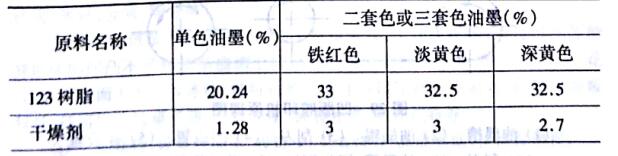 原料名称 单色油墨(%) 二套色或三套色油墨(%)
铁红色 淡黄色 深黄色
123树脂 20.24 33 32.5 32.5
干燥剂 1.28 3 3 2.7